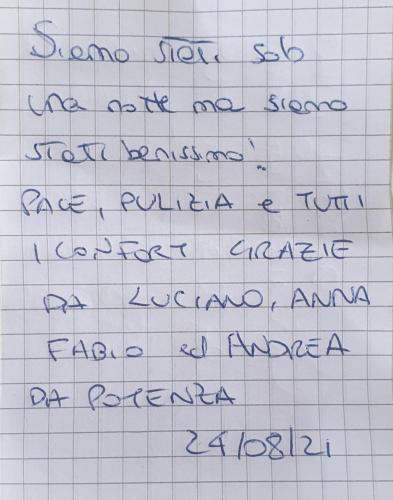 Siamo stati solo
una notte ma siamo
stati benissimo!
PACE, PULIZIA e TUTTI
I CONFORT GRAZIE
DA LUCIANO, ANNA
FABIO ed ANDREA
DA POTENZA
24/08/21